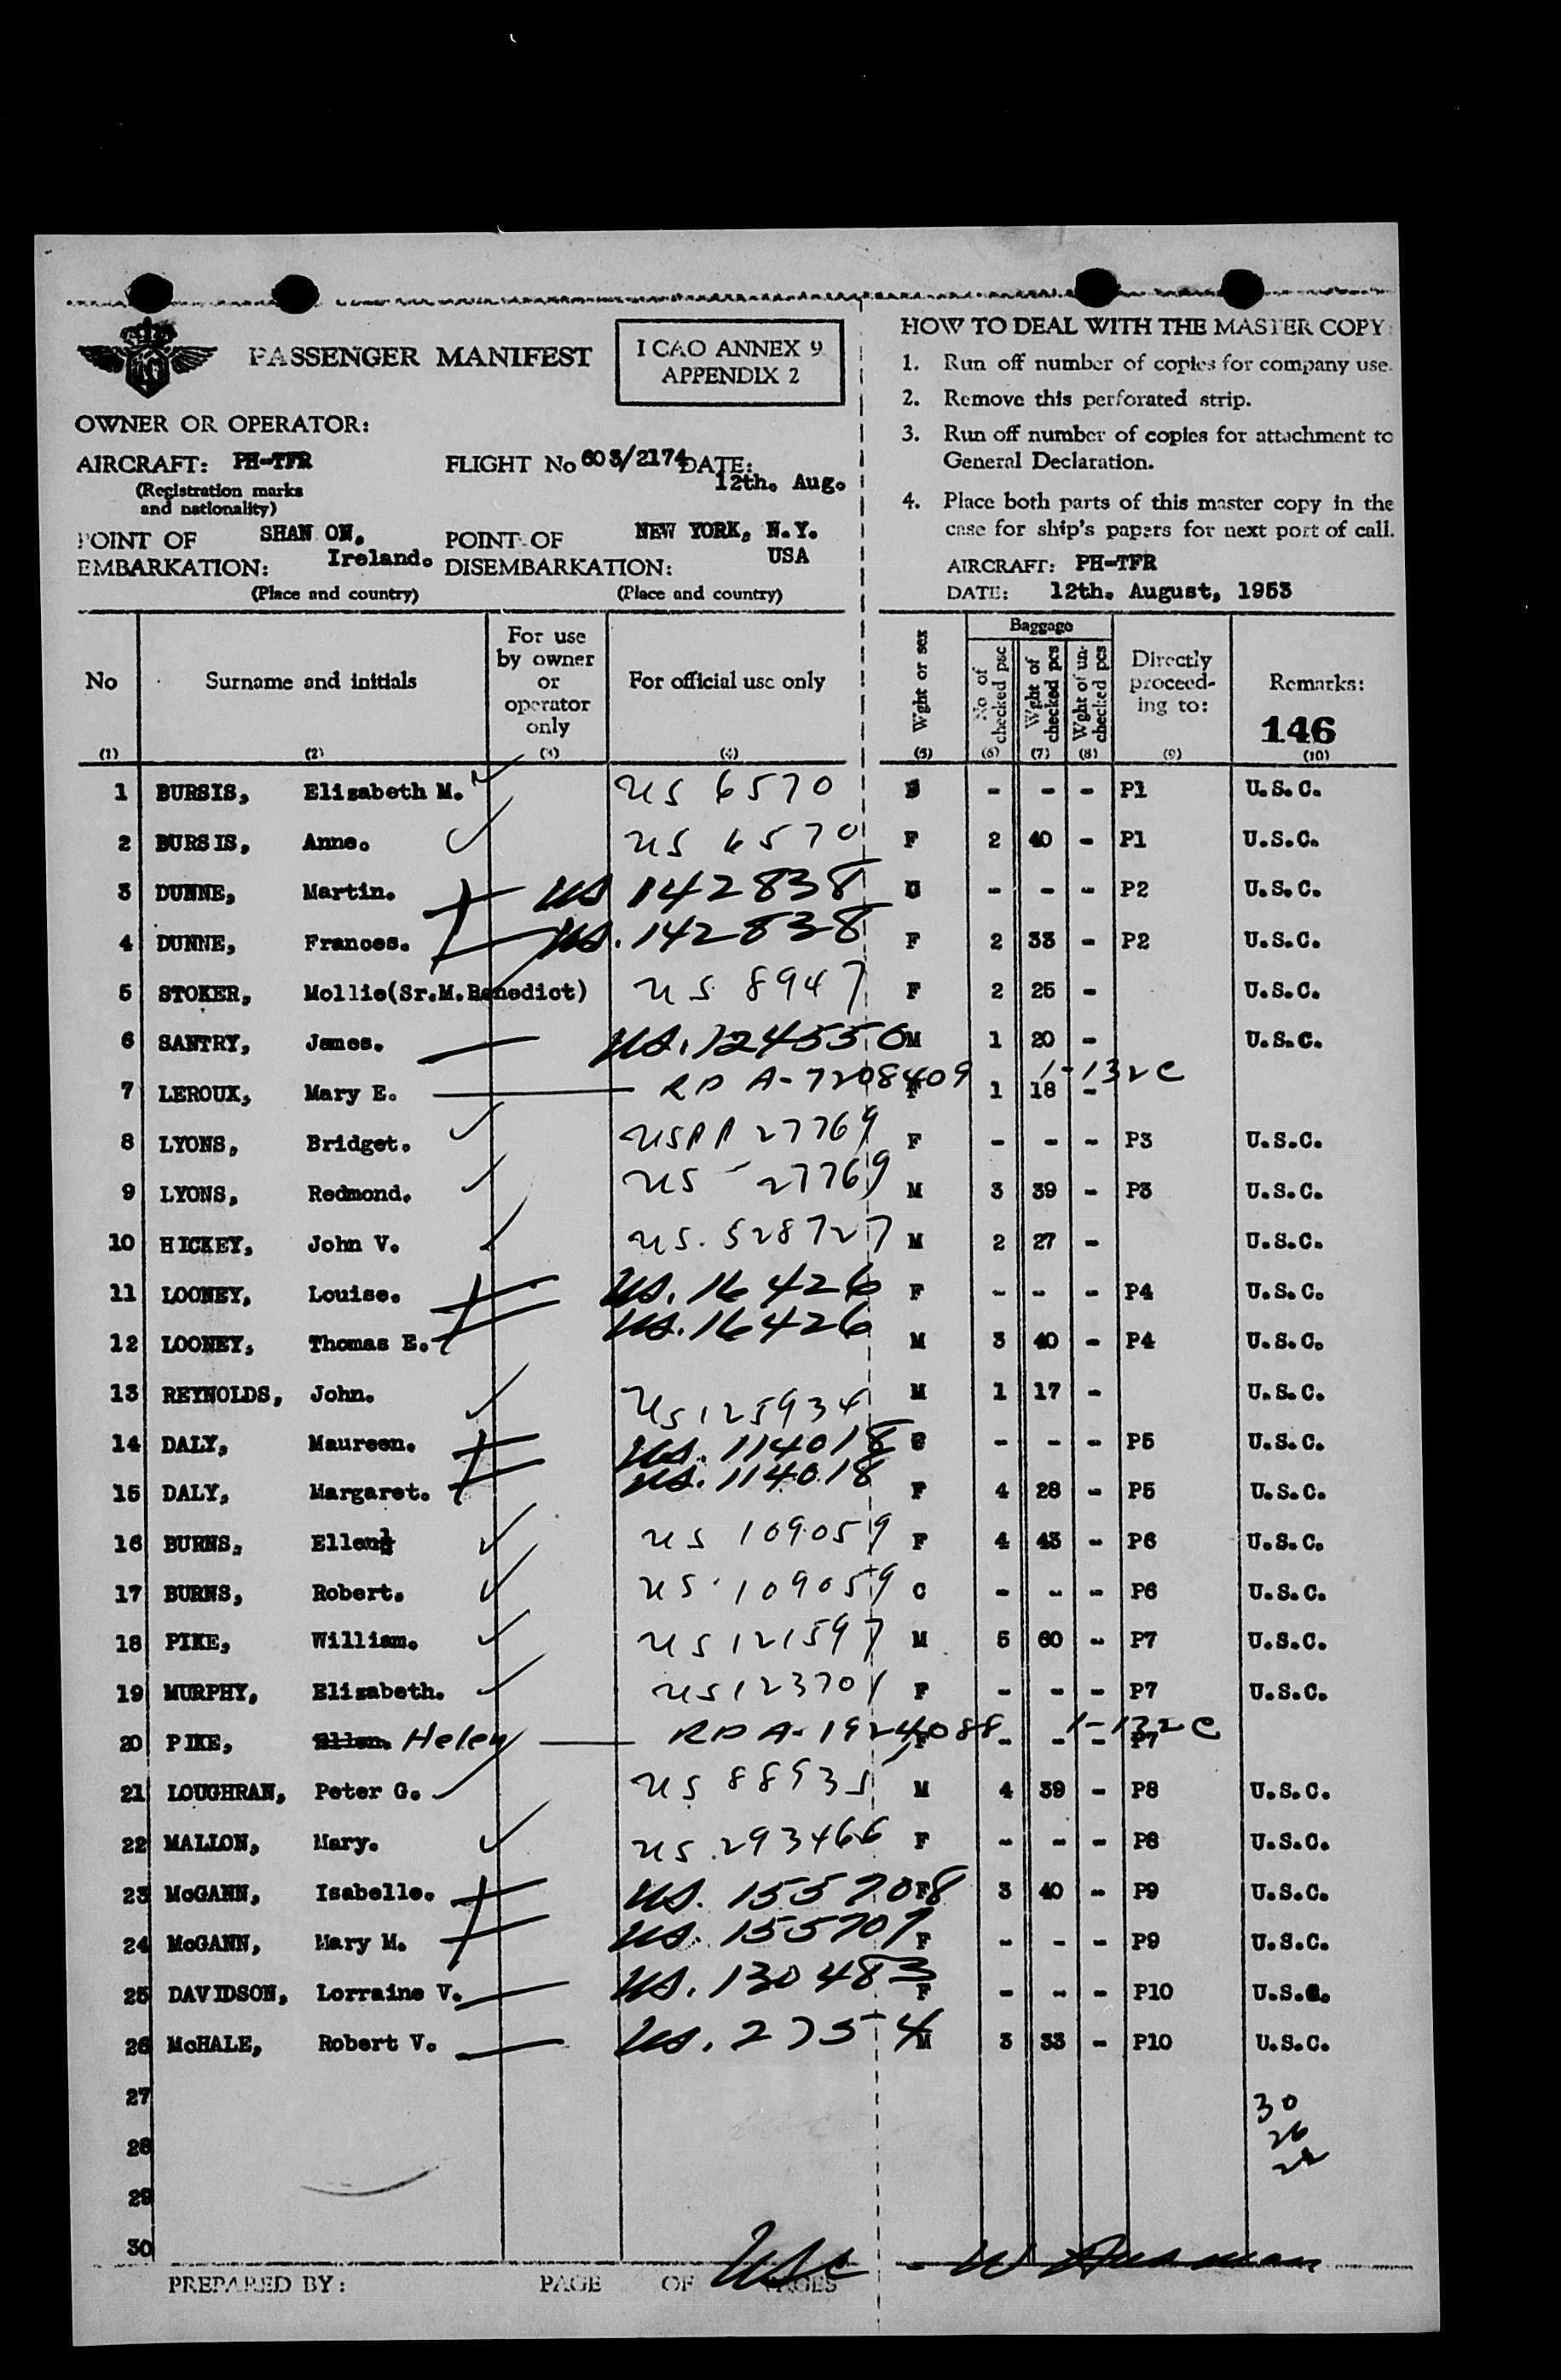 PASSENGER MANIFEST
I CAO ANNEX 9
APPENDIX 2
OWNER OR OPERATOR:
AIRCRAFT: PH-TFR
FLIGHT No 603/2174 DATE:
12th. Aug.
(Registration marks
and nationality)
POINT OF SHAN ON,
EMBARKATION: Ireland.
(Place and country)
POINT OF NEW YORK, N.Y.
DISEMBARKATION: USA
(Place and country)
HOW TO DEAL WITH THE MASTER COPY:
1. Run off number of copies for company use.
2. Remove this perforated strip.
3. Run off number of copies for attachment to
General Declaration.
4. Place both parts of this master copy in the
case for ship's papers for next port of call.
AIRCRAFT: PH-TFR
DATE: 12th. August, 1953
No
(1)
Surname and initials
(2)
For use
by owner
or
operator
only
(3)
For official use only
(4)
Wght or sex
(5)
Baggage
No of
checked psc
(6)
Wght of
checked pcs
(7)
Wght of un-
checked pcs
(8)
Directly
proceed-
ing to:
(9)
Remarks:
146
(10)
1 BURSIS, Elizabeth M. US 6570 - - - P1 U.S.C.
2 BURSIS, Anne. US 6570 F 2 40 - P1 U.S.C.
3 DUNNE, Martin. US 142838 - - - P2 U.S.C.
4 DUNNE, Frances. US. 142838 F 2 33 - P2 U.S.C.
5 STOKER, Mollie(Sr.M.Benedict) US 8947 F 2 25 - U.S.C.
6 SANTRY, James. US. 124550 M 1 20 - U.S.C.
7 LEROUX, Mary E. RP A-7208409 F 1 18 - 1-132C
8 LYONS, Bridget. US PP 27769 F - - - P3 U.S.C.
9 LYONS, Redmond. US - 27769 M 3 39 - P3 U.S.C.
10 HICKEY, John V. US. 528727 M 2 27 - U.S.C.
11 LOONEY, Louise. US. 16426 F - - - P4 U.S.C.
12 LOONEY, Thomas E. US. 16426 M 3 40 - P4 U.S.C.
13 REYNOLDS, John. US 125934 M 1 17 - U.S.C.
14 DALY, Maureen. US. 114018 C - - - P5 U.S.C.
15 DALY, Margaret. US. 114018 F 4 28 - P5 U.S.C.
16 BURNS, Ellen US 109059 F 4 43 - P6 U.S.C.
17 BURNS, Robert. US. 109059 C - - - P6 U.S.C.
18 PIKE, William. US 121597 M 5 60 - P7 U.S.C.
19 MURPHY, Elizabeth. US 123701 F - - - P7 U.S.C.
20 PIKE, Ellen. Helen RP A-1924088 F - - - P7 1-132C
21 LOUGHRAN, Peter G. US 88935 M 4 39 - P8 U.S.C.
22 MALLON, Mary. US. 293466 F - - - P8 U.S.C.
23 McGANN, Isabelle. US. 155708 F 3 40 - P9 U.S.C.
24 McGANN, Mary M. US. 155707 F - - - P9 U.S.C.
25 DAVIDSON, Lorraine V. US. 130483 F - - - P10 U.S.C.
26 McHALE, Robert V. US. 2754 M 3 33 - P10 U.S.C.
27
28
29
30
30
26
PREPARED BY: PAGE OF PAGES
USC